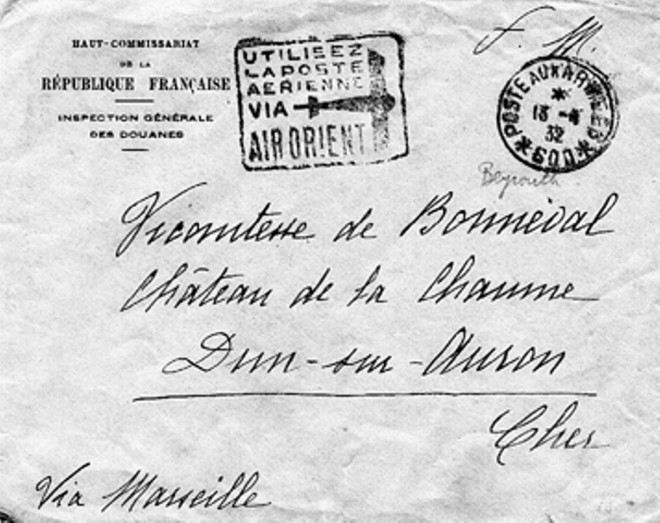 HAUT-COMMISSARIAT
DE LA
RÉPUBLIQUE FRANÇAISE
INSPECTION GÉNÉRALE
DES DOUANES
UTILISEZ
LA POSTE
AERIENNE
VIA
AIR ORIENT
F. M.
POSTE AUX ARMEES
13 -4
32
600
Beyrouth
Vicomtesse de Bonneval
Château de la Chaume
Dun-sur-Auron
Cher
Via Marseille